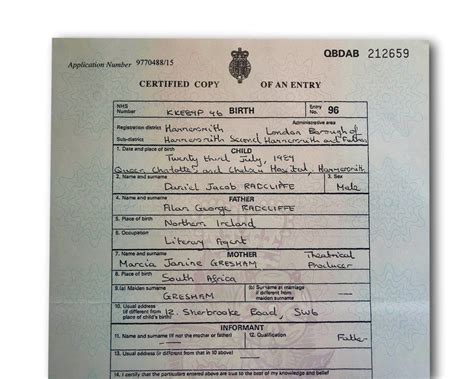 QBDAB 212659
Application Number 9770488/15
CERTIFIED COPY OF AN ENTRY
NHS Number BIRTH Entry No. 96
Administrative area
Registration district Hammersmith London Borough of
Sub-district Hammersmith Second Hammersmith and
1. Date and place of birth CHILD
Twenty third July, 1989
Queen Charlotte's and Chelsea Hospital, Hammersmith
2. Name and surname 3. Sex
Daniel Jacob RADCLIFFE Male
4. Name and surname FATHER
Alan George RADCLIFFE
5. Place of birth
Northern Ireland
6. Occupation
Literary Agent
7. Name and surname MOTHER Theatrical
Marcia Janine GRESHAM Producer
8. Place of birth
South Africa
9.(a) Maiden surname (b) Surname at marriage if different from maiden surname
GRESHAM
10. Usual address (if different from place of child's birth) 12. Sherbrooke Road, SW6
INFORMANT
11. Name and surname (if not the mother or father) 12. Qualification
13. Usual address (if different from that in 10 above)
14. I certify that the particulars entered above are true to the best of my knowledge and belief